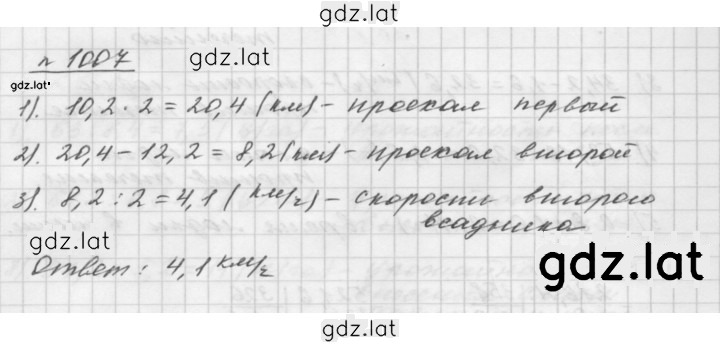 gdz.lat
№ 1007
gdz.lat
gdz.lat
1). 10,2 · 2 = 20,4 (км) - проехал первый
2). 20,4 - 12,2 = 8,2 (км) - проехал второй
3). 8,2 : 2 = 4,1 (км/г) - скорости второго
всадника
gdz.lat
Ответ: 4,1 км/г
gdz.lat
gdz.lat